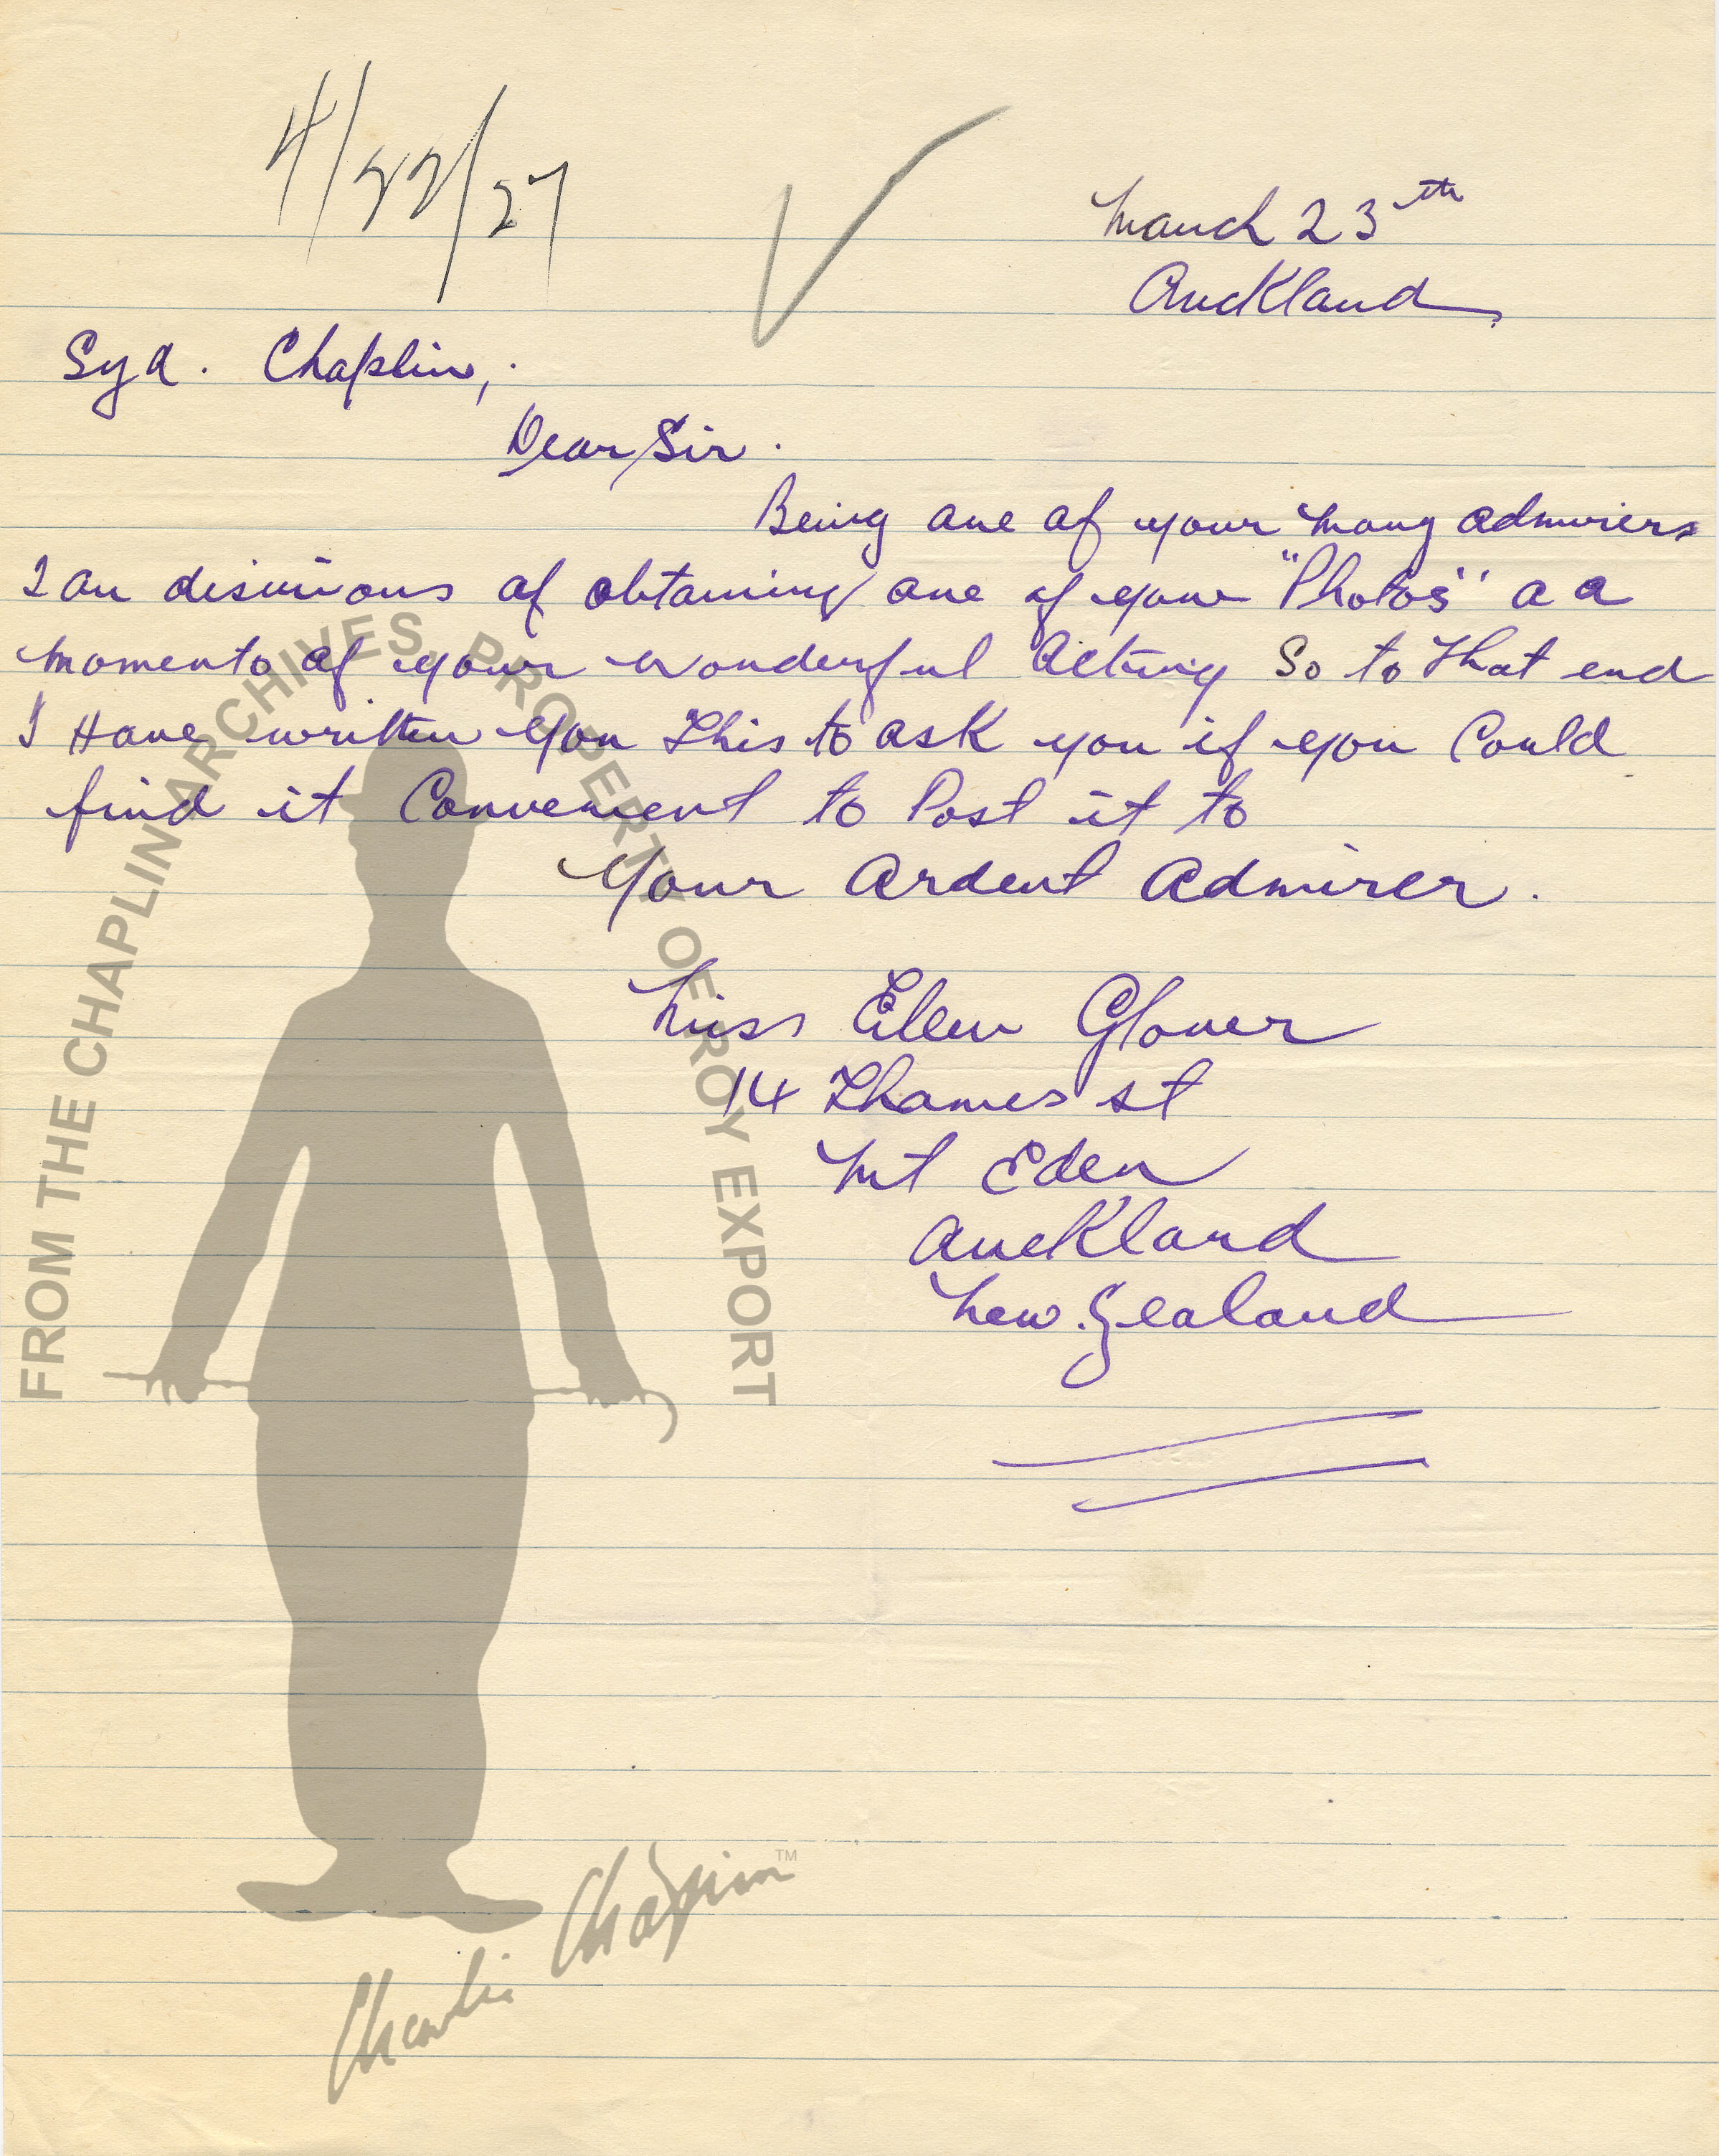 4/22/27
March 23th
Auckland
Syd. Chaplin,.
Dear Sir.
Being one of your many admirers
I am of obtaining one of your "Photos" a a
momento of your wonderful Acting So to that end
I Have written you This to ask you if you Could
find it Convenient to Post it to
Your Ardent Admirer.
Miss Ellen Glover
14 Thames st
Mt Eden
Auckland
New Zealand
FROM THE CHAPLIN ARCHIVES, PROPERTY OF ROY EXPORT
Charlie Chaplin TM